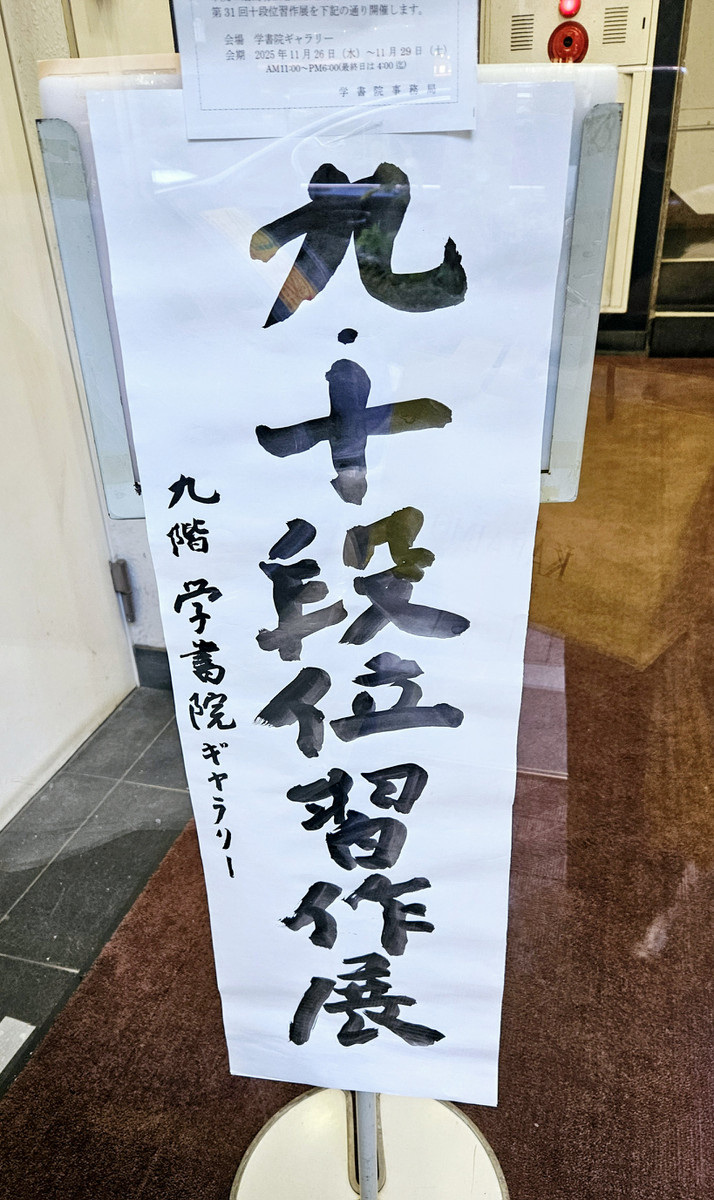 第31回十段位習作展を下記の通り開催します。
会場 学書院ギャラリー
会期 2025年11月26日（水）～11月29日（土）
AM11:00～PM6:00(最終日は4:00迄)
学書院事務局
九・十段位習作展
九階 学書院ギャラリー